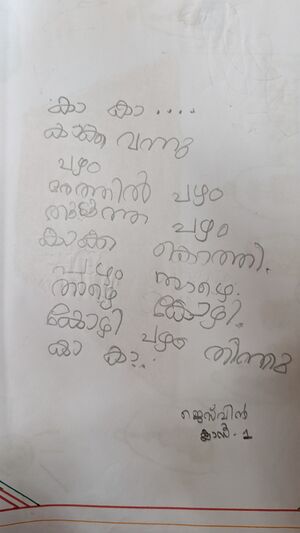 കാ കാ ....
കാക്ക വന്നു
പഴം
മരത്തിൽ പഴം
തുടുത്ത പഴം
കാക്ക കൊത്തി.
പഴം താഴെ.
താഴെ കോഴി.
കോഴി പഴം തിന്നു
കാ കാ..
ജെസ്‌വിൻ
ക്ലാസ് - 1